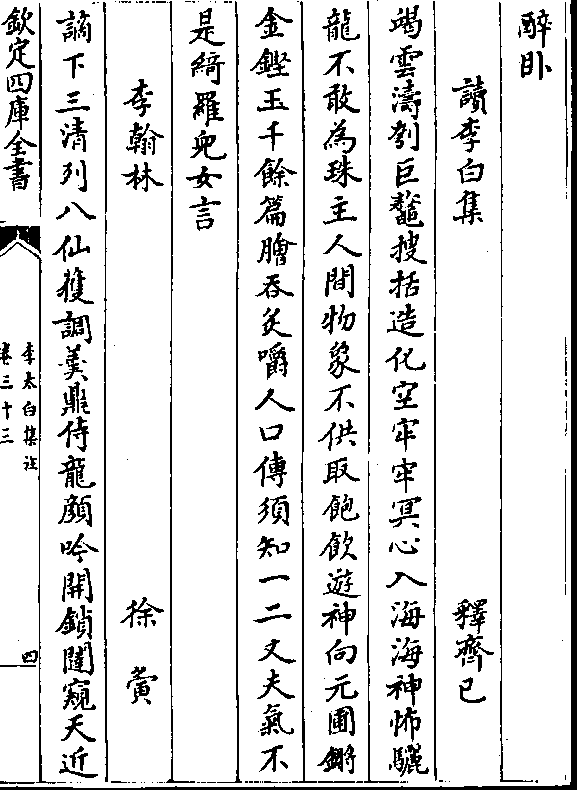 醉卧
讀李白集 釋齊已
竭雲濤刳巨鼇搜括造化空牢牢冥心入海海神怖驪
龍不敢為珠主人間物象不供取飽飲遊神向元圃鏘
金鏗玉千餘篇膾吞炙嚼人口傳須知一二丈夫氣不
是綺羅兒女言
李翰林 徐夤
謫下三清列八仙獲調羮鼎侍龍顔吟開鎖闥窺天近
欽定四庫全書
李太白集註
卷三十三
四